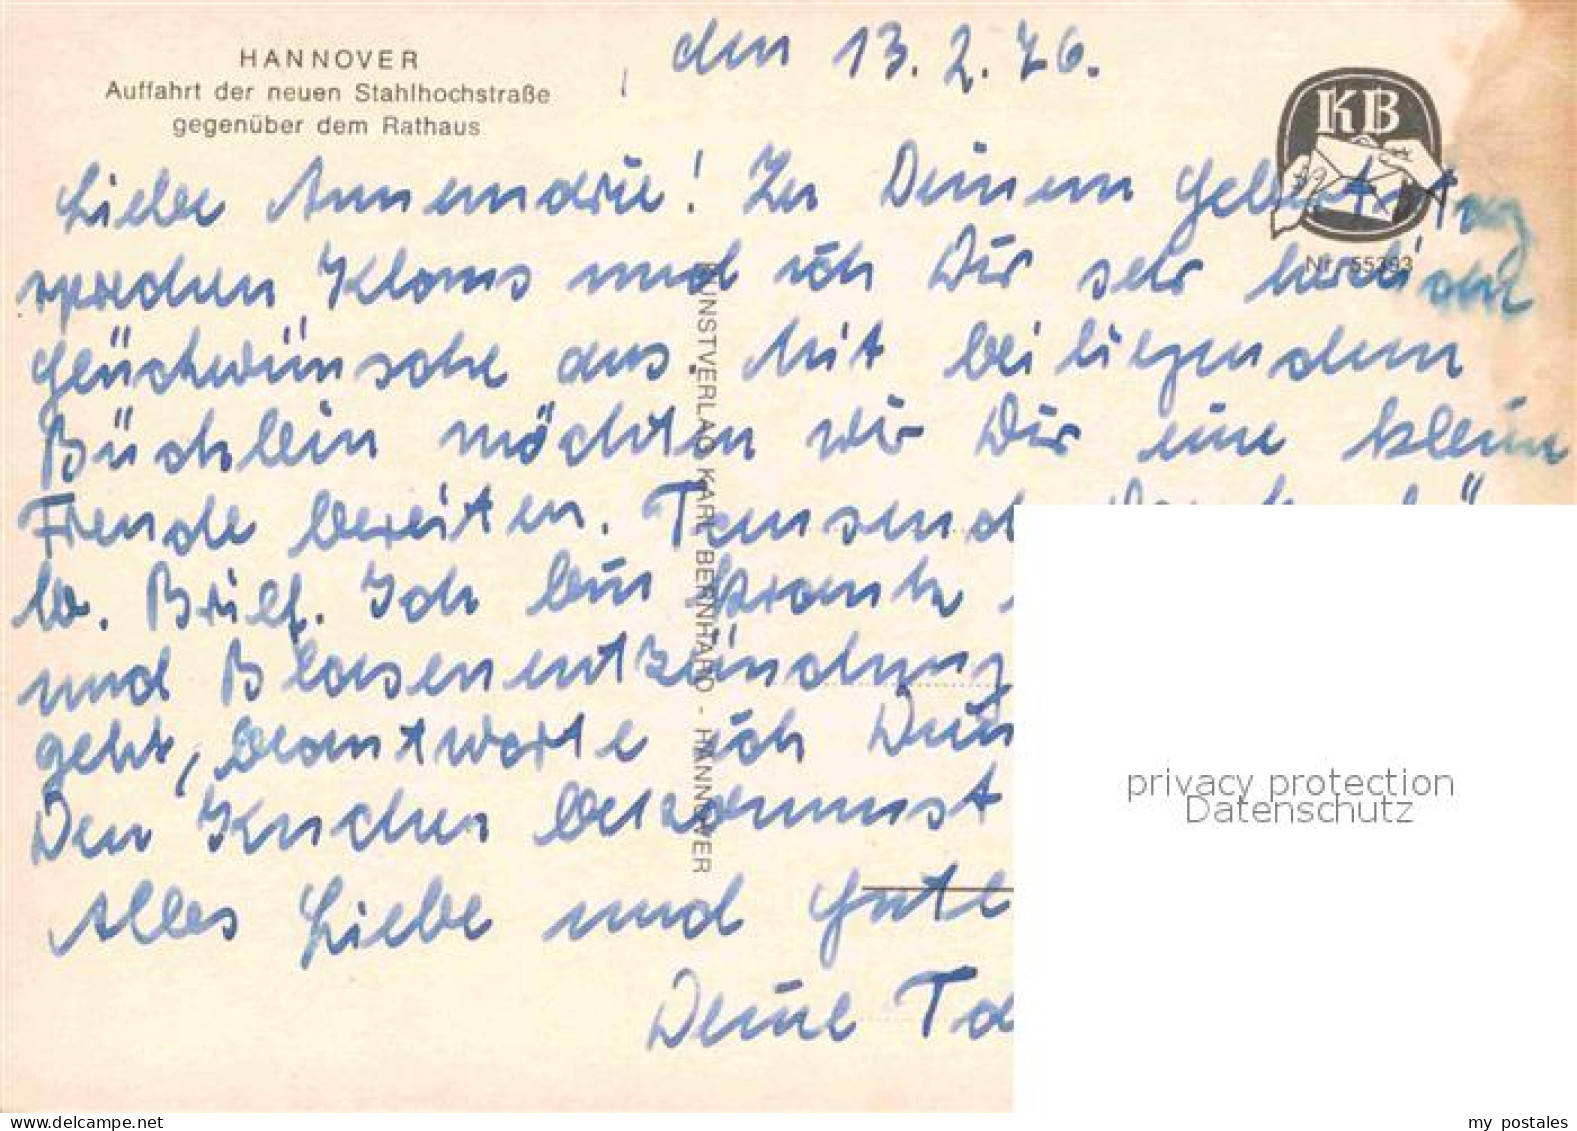 HANNOVER
Auffahrt der neuen Stahlhochstraße
gegenüber dem Rathaus
den 13.2.76.
KB
Nr. 55393
Liebe Annemarie! Zu Deinem Geburtstag
sprechen Klaus und ich Dir sehr herzliche
Glückwünsche aus. Mit beiliegendem
Büchlein möchten wir Dir eine kleine
Freude bereiten. Tausend Dank
lb. Brief. Ich bin krank
und Blasenentzündung
geht, beantworte ich Dein
Den Kuchen bekommst
Alles Liebe und Gute
Deine Ta
KUNSTVERLAG KARL BERNHARD - HANNOVER
privacy protection
Datenschutz
my postales